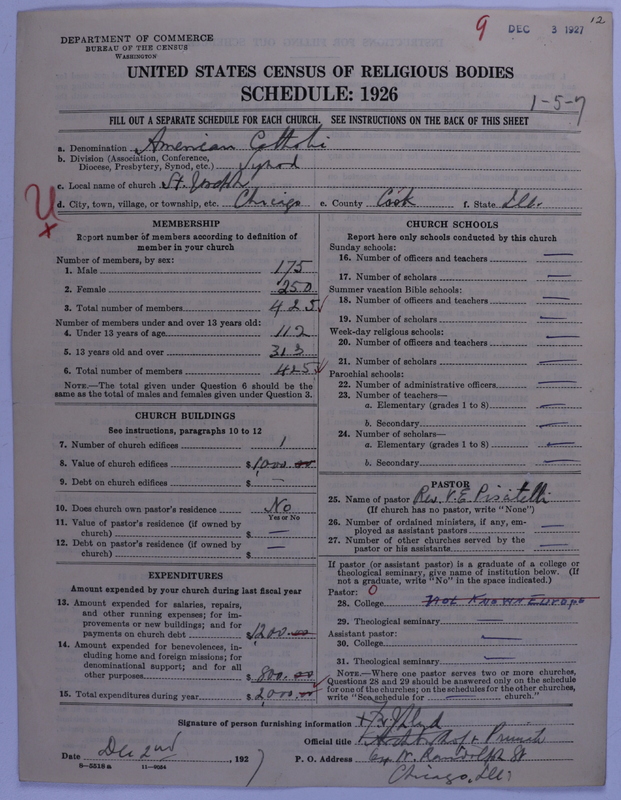 9 DEC 3 1927 12
DEPARTMENT OF COMMERCE
BUREAU OF THE CENSUS
WASHINGTON
UNITED STATES CENSUS OF RELIGIOUS BODIES
SCHEDULE: 1926
1-5-7
FILL OUT A SEPARATE SCHEDULE FOR EACH CHURCH. SEE INSTRUCTIONS ON THE BACK OF THIS SHEET
a. Denomination American Catholi
b. Division (Association, Conference,
Diocese, Presbytery, Synod, etc.) Synod
c. Local name of church St. Joseph
d. City, town, village, or township, etc. Chicago e. County Cook f. State Ill.
MEMBERSHIP
Report number of members according to definition of
member in your church
Number of members, by sex:
1. Male 175
2. Female 250
3. Total number of members 425
Number of members under and over 13 years old:
4. Under 13 years of age 112
5. 13 years old and over 313
6. Total number of members 425
NOTE.—The total given under Question 6 should be the
same as the total of males and females given under Question 3.
CHURCH BUILDINGS
See instructions, paragraphs 10 to 12
7. Number of church edifices 1
8. Value of church edifices $1000.00
9. Debt on church edifices $ —
10. Does church own pastor's residence No
Yes or No
11. Value of pastor's residence (if owned by
church) $ —
12. Debt on pastor's residence (if owned by
church) $ —
EXPENDITURES
Amount expended by your church during last fiscal year
13. Amount expended for salaries, repairs,
and other running expenses; for im-
provements or new buildings; and for
payments on church debt $1200.00
14. Amount expended for benevolences, in-
cluding home and foreign missions; for
denominational support; and for all
other purposes $800.00
15. Total expenditures during year $2000.00
CHURCH SCHOOLS
Report here only schools conducted by this church
Sunday schools:
16. Number of officers and teachers —
17. Number of scholars —
Summer vacation Bible schools:
18. Number of officers and teachers —
19. Number of scholars —
Week-day religious schools:
20. Number of officers and teachers —
21. Number of scholars —
Parochial schools:
22. Number of administrative officers —
23. Number of teachers—
a. Elementary (grades 1 to 8) —
b. Secondary —
24. Number of scholars—
a. Elementary (grades 1 to 8) —
b. Secondary —
PASTOR
25. Name of pastor Rev. V. E. Pisitelli
(If church has no pastor, write "None")
26. Number of ordained ministers, if any, em-
ployed as assistant pastors —
27. Number of other churches served by the
pastor or his assistants —
If pastor (or assistant pastor) is a graduate of a college or
theological seminary, give name of institution below. (If
not a graduate, write "No" in the space indicated.)
Pastor: 0
28. College Not Known Europe
29. Theological seminary —
Assistant pastor:
30. College —
31. Theological seminary —
NOTE.—Where one pastor serves two or more churches,
Questions 28 and 29 should be answered only on the schedule
for one of the churches; on the schedules for the other churches,
write "See schedule for church."
Signature of person furnishing information
Official title
Date Dec 2nd, 1927 P. O. Address W. Randolph St
Chicago, Ill.
8—5318a 11—9054